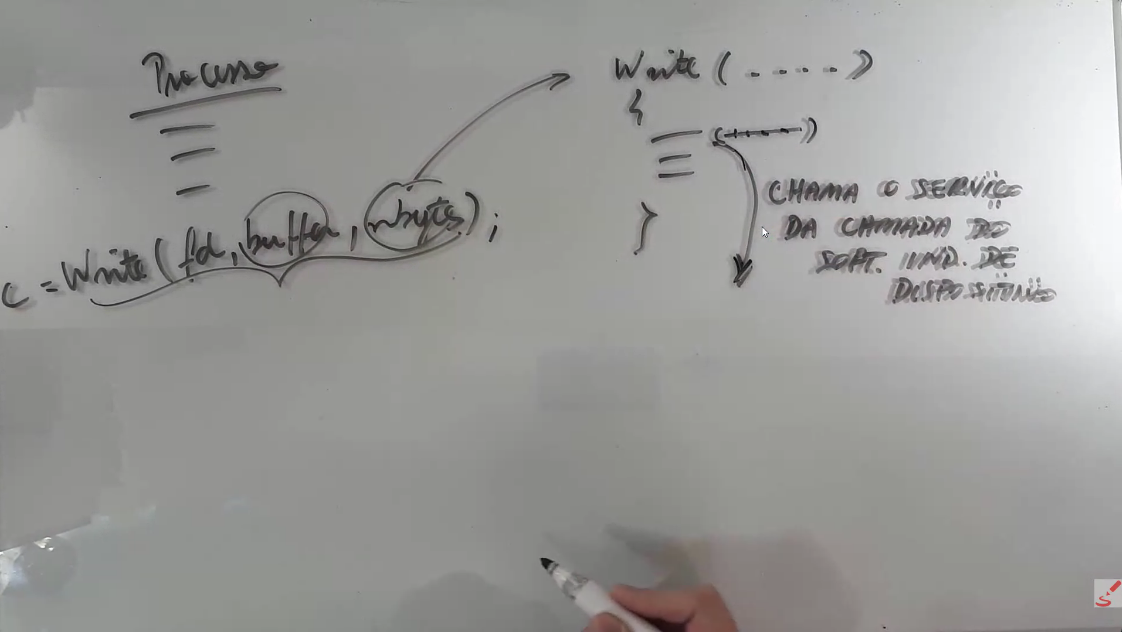 Processo
c = Write(fd, buffer, nbytes);
Write(.....)
{
}
CHAMA O SERVIÇO
DA CAMADA DO
SOFT. IND. DE
DISPOSITIVO